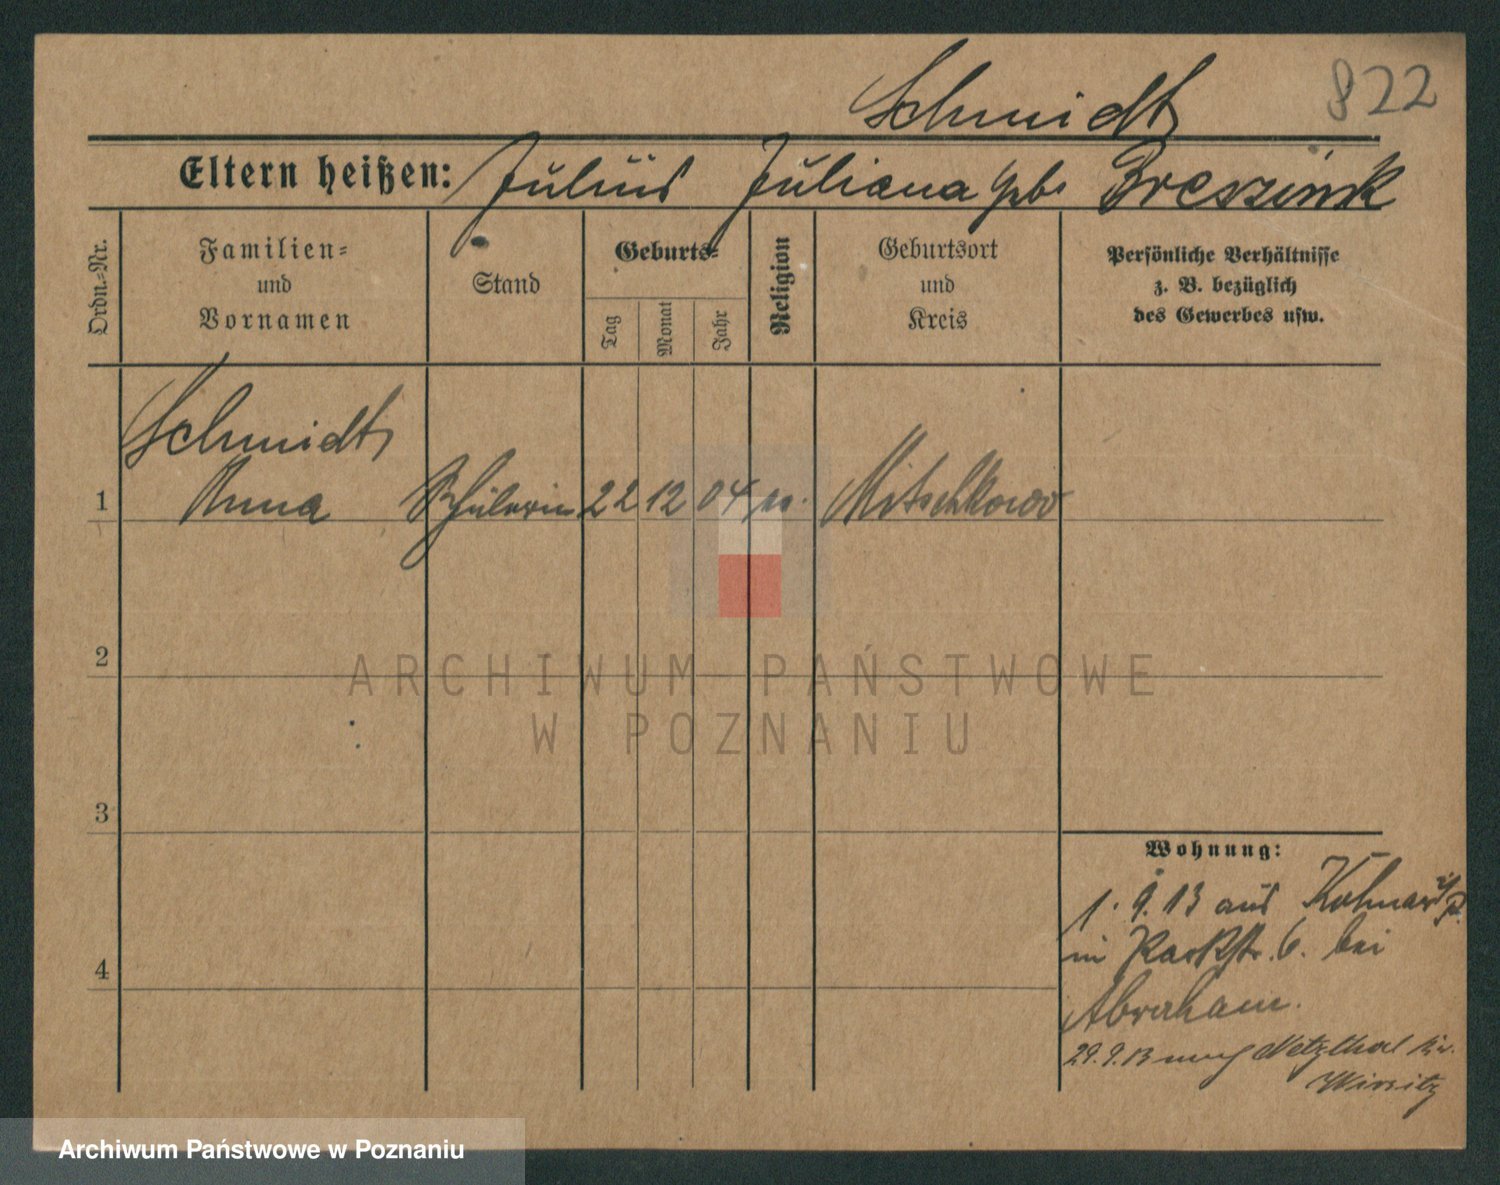 822
Schmidt
Eltern heißen: Julius Juliana geb. Breszinsk
Ordn.-Nr.
Familien-
und
Vornamen
Stand
Geburts-
Tag
Monat
Jahr
Religion
Geburtsort
und
Kreis
Persönliche Verhältnisse
z. B. bezüglich
des Gewerbes usw.
Schmidt
1 Anna Schülerin 22 12 04 Mitschkowo
2
ARCHIWUM PAŃSTWOWE
W POZNANIU
3
4
Wohnung:
1. 9. 13 aus Kolmar i/P.
in Parkstr. 6. bei
Abraham.
29. 9. 13 nach Netzthal Kr.
Wirsitz
Archiwum Państwowe w Poznaniu